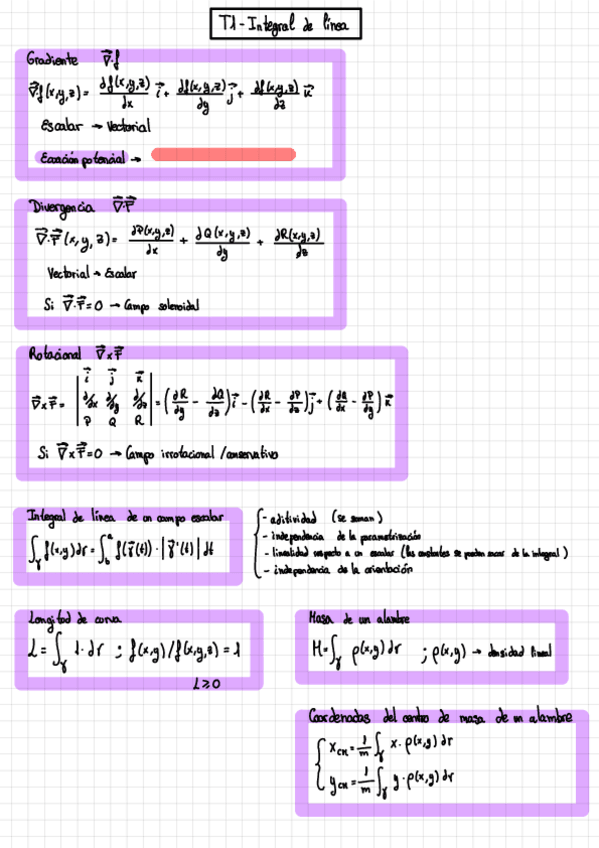 T1 - Integral de línea
Gradiente ∇⃗·f
∇⃗f(x,y,z) = ∂f(x,y,z)/∂x i⃗ + ∂f(x,y,z)/∂y j⃗ + ∂f(x,y,z)/∂z k⃗
Escalar → Vectorial
Ecuación potencial →
Divergencia ∇⃗·F⃗
∇⃗·F⃗(x,y,z) = ∂P(x,y,z)/∂x + ∂Q(x,y,z)/∂y + ∂R(x,y,z)/∂z
Vectorial → Escalar
Si ∇⃗·F⃗=0 → Campo solenoidal
Rotacional ∇⃗×F⃗
i⃗ j⃗ k⃗
∇⃗×F⃗ = | ∂/∂x ∂/∂y ∂/∂z | = (∂R/∂y - ∂Q/∂z) i⃗ - (∂R/∂x - ∂P/∂z) j⃗ + (∂Q/∂x - ∂P/∂y) k⃗
P Q R
Si ∇⃗×F⃗=0 → Campo irrotacional/conservativo
Integral de línea de un campo escalar
∫γ f(x,y)dr = ∫_b^a f(γ⃗(t)) · |γ⃗'(t)| dt
- aditividad (se suman)
- independencia de la parametrización
- linealidad respecto a un escalar (las constantes se pueden sacar de la integral)
- independencia de la orientación
Longitud de curva
L = ∫γ 1·dr ; f(x,y)/f(x,y,z) = 1
L ≥ 0
Masa de un alambre
M = ∫γ ρ(x,y) dr ; ρ(x,y) → densidad lineal
Coordenadas del centro de masa de un alambre
x_CM = 1/m ∫γ x·ρ(x,y) dr
y_CM = 1/m ∫γ y·ρ(x,y) dr